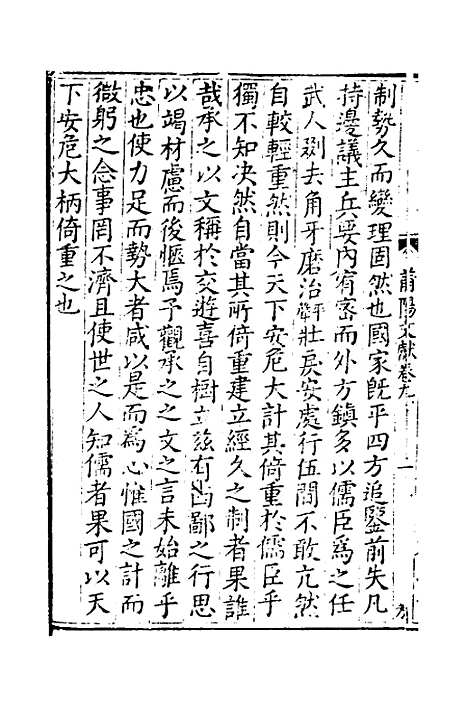 莆陽文獻卷九
一
制勢久而變理固然也國家旣平四方追鑒前失凡
持邊議主兵要内宥密而外方鎮多以儒臣爲之任
武人剟去角牙磨治壯戾安處行伍間不敢亢然
自較輕重然則今天下安危大計其倚重於儒臣乎
獨不知决然自當其所倚重建立經久之制者果誰
哉承之以文稱於交遊喜自樹立兹有嵒鄙之行思
以竭材慮而後愜焉予觀承之之文之言未始離乎
忠也使力足而勢大者咸以是而爲心惟國之計而
微躬之念事罔不濟且使世之人知儒者果可以天
下安危大柄倚重之也